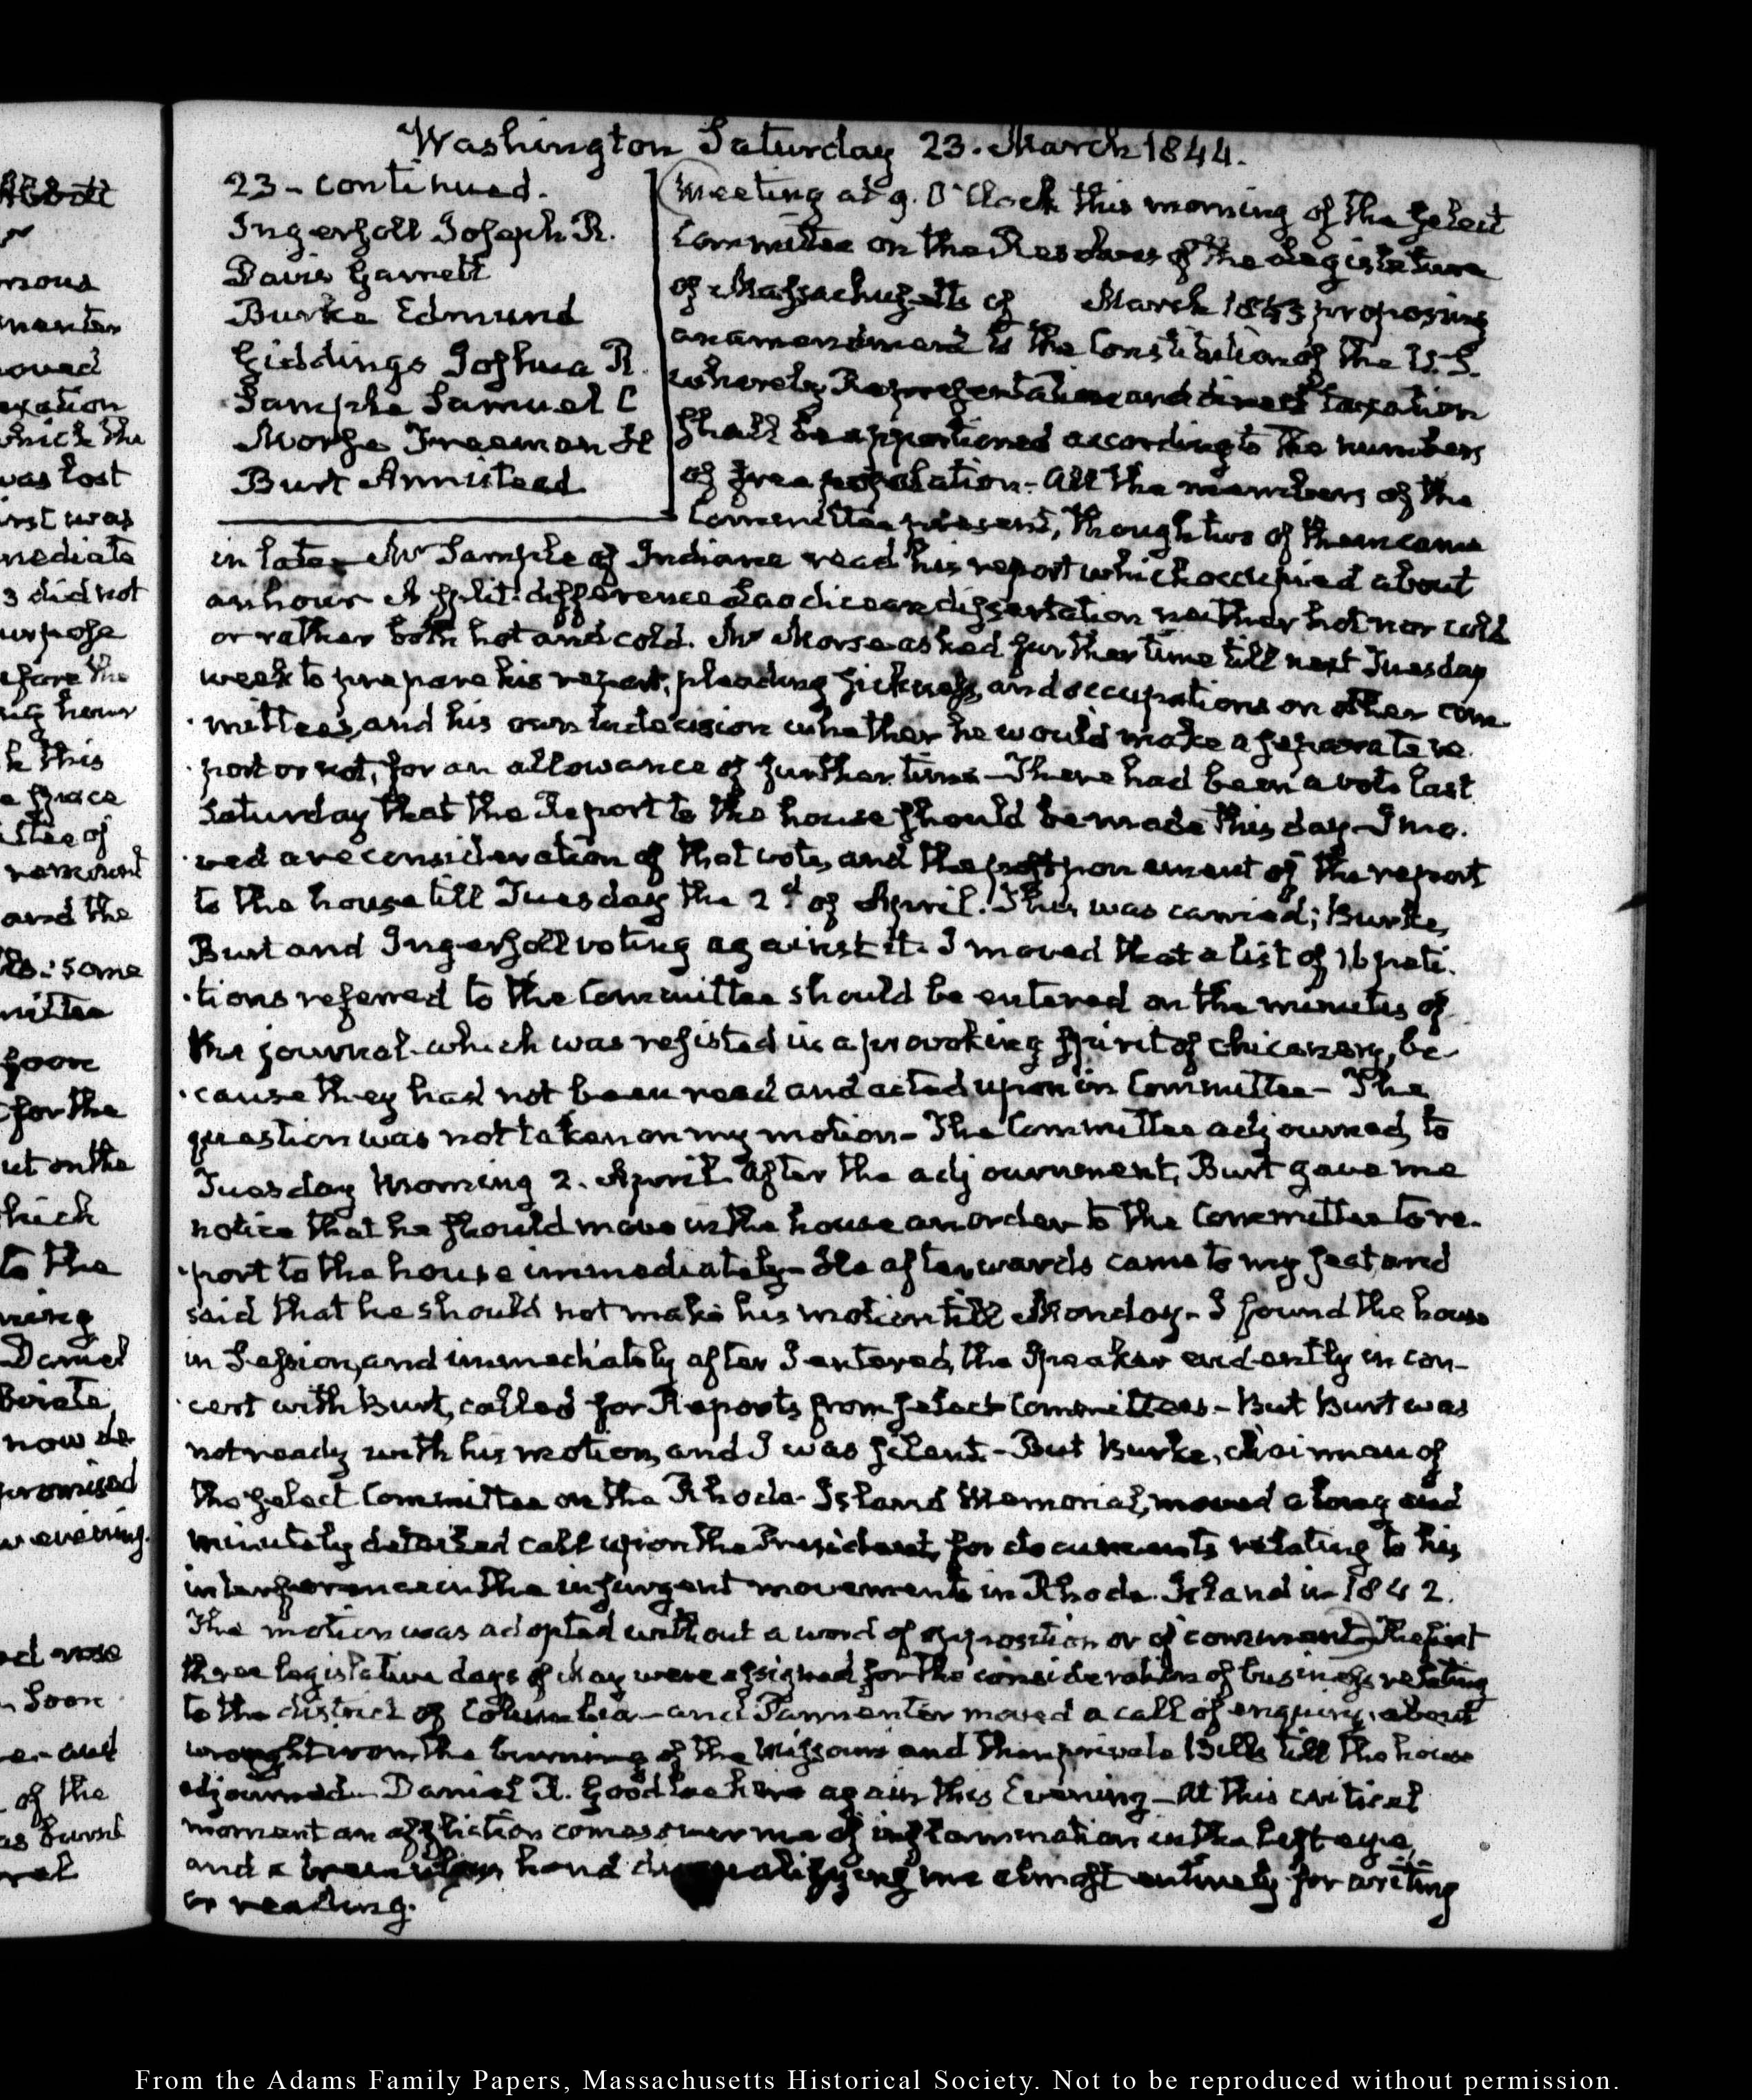 Washington Saturday 23. March 1844.
23 - continued.
Ingersoll Joseph R.
Davis Garrett
Burke Edmund
Giddings Joshua R.
Sample Samuel C
Morse Freeman H
Burt Armistead
Meeting at 9. O'Clock this morning of the Select
Committee on the Resolves of the Legislature
of Massachusetts of March 1843 proposing
an amendment to the Constitution of the U.S.
whereby Representation and direct taxation
shall be apportioned according to the numbers
of free population - All the members of the
Committee present, though two of them came
in late - Mr Sample of Indiana read his report which occupied about
an hour A split-difference Laodicean dissertation neither hot nor cold
or rather both hot and cold. Mr Morse asked further time till next Tuesday
week to prepare his report, pleading sickness, and occupations on other com
mittees, and his own indecision whether he would make a separate re.
port or not, for an allowance of further time - There had been a vote last
Saturday that the Report to the house should be made this day - I mo.
ved a reconsideration of that vote, and the postponement of the report
to the house till Tuesday the 2d of April. This was carried; Burke,
Burt and Ingersoll voting against it. I moved that a list of 16 peti.
tions referred to the Committee should be entered on the minutes of
the journal. which was resisted in a provoking spirit of chicanery, be-
cause they had not been read and acted upon in Committee - The
question was not taken on my motion - The Committee adjourned, to
Tuesday Morning 2. April. After the adjournment, Burt gave me
notice that he should move in the house an order to the Committee to re.
port to the house immediately - He afterwards came to my seat, and
said that he should not make his motion till Monday - I found the house
in Session, and immediately after I entered, the Speaker evidently in con-
cert with Burt, called for Reports from select Committees - But Burt was
not ready with his motion, and I was silent - But Burke, chairman of
the select Committee on the Rhode-Island Memorial, moved a long and
minutely detailed call upon the President, for documents relating to his
interference in the insurgent movements in Rhode Island in 1842.
The motion was adopted without a word of opposition or of comment) The first
three legislative days of May were assigned for the consideration of business relating
to the district of Columbia - and Parmenter moved a call of enquiry, about
wrought iron, the burning of the Missouri and then private Bills till the house
adjourned. Daniel R. Goodloe here again this Evening - At this critical
moment an affliction comes over me of inflammation in the left eye,
and a tremulous hand disqualifying me almost entirely for writing
or reading.
From the Adams Family Papers, Massachusetts Historical Society. Not to be reproduced without permission.